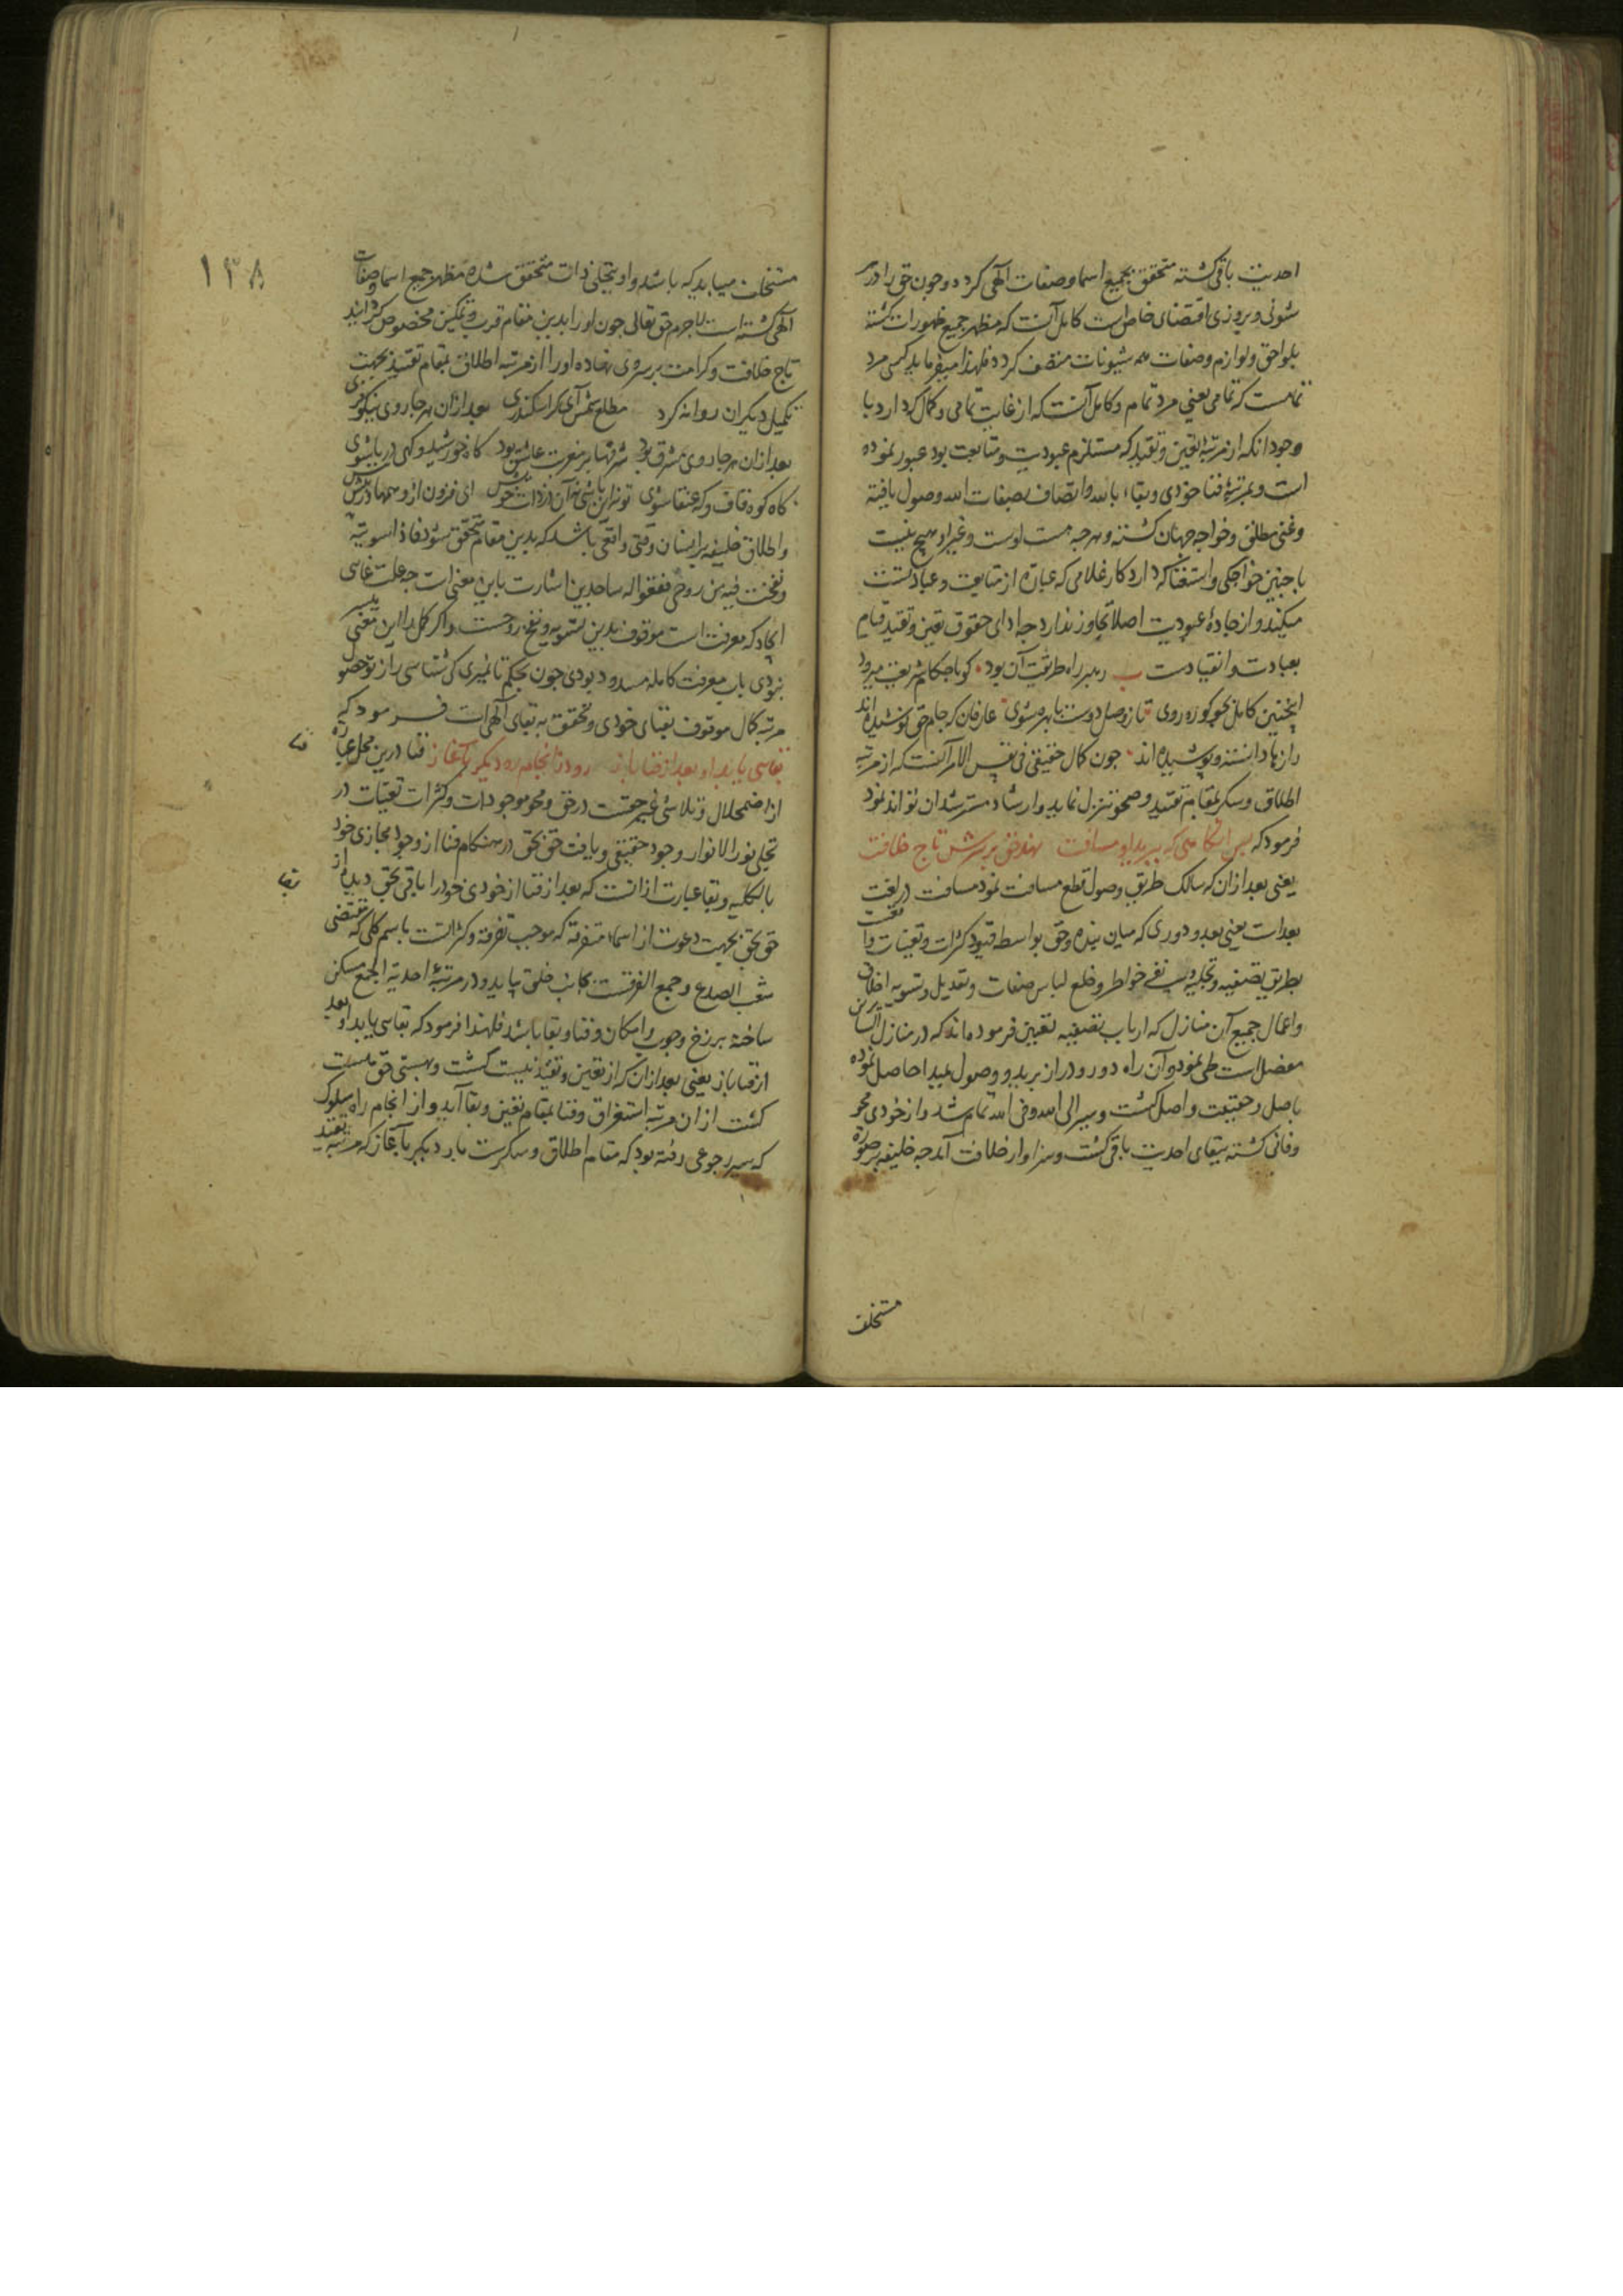 احدیت باقی کشته متحقق بجمیع اسما و صفات الهی کردد و چون حق را در هر
شوئنی و بروزی اقتضای خاص است کامل آنست که مظهر جمیع ظهورات کشته
بلواحق و لوازم و صفات همه شیونات متصف کردد فلهذا میفرماید کسی مرد
تمامست کز تمامی یعنی مرد تمام و کامل آنست که از غایت تمامی و کمال که دارد با
وجود انکه از مرتبهٔ تعین و تقید که مستلزم عبودیت و متابعت بود عبور نموده
است و بمرتبهٔ فنا خودی و بقاء بالله و اتصاف بصفات الله وصول یافته
و غنی مطلق و خواجه جهان کشته و هرچه هست اوست و غیر او هیچ نیست
با چنین خواجکی و استغنا که دارد کار غلامی که عبارة از متابعت و عبادتست
میکند و از جادهٔ عبودیت اصلا تجاوز ندارد چه ادای حقوق تعین و تقید قیام
بعبادت و انقیادست رهبر راه طریقت آن بود کو باحکام شریعت میرود
اینچنین کامل بجو کو ره روی تا ز وصل دوست با بهره شوی عارفان که جام حق نوشیده اند
رازها دانسته و پوشیده اند چون کمال حقیقی فی نفس الامر آنست که از مرتبه
اطلاق و سکر بمقام تقید و صحو تنزل نماید و ارشاد مسترشدان تواند نمود
فرمود که پس آنکاهی که ببرید او مسافت نهد حق بر سرش تاج خلافت
یعنی بعد از ان که سالک طریق وصول قطع مسافت نمود مسافت در لغت
بعد است یعنی بعد و دوری که میان بنده و حق بواسطه قیود کثرات و تعینات واقعست
بطریق تصفیه و تجلیه و نفی خواطر و خلع لباس صفات و تعدیل و تسویه اخلاق
و اعمال جمیع آن منازل که ارباب تصفیه تعیین فرموده اند که در منازل السایرین
مفصل است طی نمود و آن راه دور و دراز برید و وصول بمبدا حاصل نموده
باصل و حقیقت واصل کشت و سیر الی الله و فی الله تمام شد و از خودی محو
و فانی کشته ببقای احدیت باقی کشت و سزاوار خلافت آمد چه خلیفه بر صورة
مستخلف
۱۳۸
مستخلف میباید که باشد و او بتجلی ذات متحقق شده مظهر جمیع اسما و صفات
الهی کشته است لاجرم حق تعالی چون او را بدین مقام قرب و تمکین مخصوص کردانید
تاج خلافت و کرامت بر سر وی نهاده او را از مرتبه اطلاق بمقام تقید بجهت
تکمیل دیکران روانه کرد مطلع شمس آی کر اسکندری بعد از ان هر جا روی نیکو فری
بعد از ان هر جا روی مشرق بود شرقها بر مغربت عاشق بود کاه خورشید و کهی دریا شوی
کاه کوه قاف و که عنقا شوی تو نه این باشی نه آن در ذات خویش ای فزون از وهمها وز بیش بیش
و اطلاق خلیفه بر ایشان وقتی واقعی باشد که بدین مقام متحقق شود فاذا سویته
و نفخت فیه من روحی فقعوا له ساجدین اشارت باین معنی است چه علت غایی
ایجاد که معرفت است موقوف بدین تسویه و نفخ روحست و اگر کمل را این معنی میسر
نبودی باب معرفت کامله مسدود بودی چون بحکم تا نمیری کی شناسی راز تو حصول
مرتبه کمال موقوف بفنای خودی و تحقق به بقای الهی است فرمود که
بقایی یابد او بعد از فنا باز رود ز انجام ره دیکر بآغاز فنا درین محل عبارة
فنا
از اضمحلال و تلاشی غیر حقست در حق و محو موجودات و کثرات تعینات در
تجلی نور الانوار وجود حقیقی و یافت حق بحق در هنکام فنا از وجود مجازی خود
بالکلیه و بقا عبارت از انست که بعد از فنا از خودی خود را باقی بحق دیده از
بقا
حق بحق بجهت دعوت از اسماء متفرقه که موجب تفرقه و کثراتست باسم کلی که مقتضی
شعب الصدع و جمع الفرقست بجانب خلق یابد و در مرتبهٔ احدیة الجمع مسکن
ساخته برزخ وجوب و امکان و فنا و بقا باشد فلهذا فرمود که بقایی یابد او بعد
از فنا باز یعنی بعد از ان که از تعین و تقید نیست کشت و بهستی حق هست
کشت از ان مرتبه استغراق و فنا بمقام تعین و بقا آید و از انجام راه سلوک
که سیر رجوعی رفته بود که مقام اطلاق و سکرست بار دیکر بآغاز که مرتبه تقید